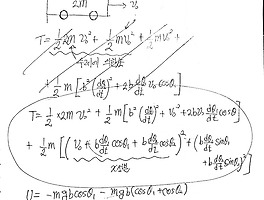 2m v₀
T = 1/2 2m v₀² + 1/2 m v₀² + 1/2 m v₀²
+ 1/2 m [b²(dθ₁/dt)² + 2b dθ₁/dt v₀ cosθ₁]
T = 1/2 × 2m v₀² + 1/2 m [b²(dθ₁/dt)² + v₀² + 2b v₀ dθ₁/dt cosθ₁]
+ 1/2 m [(v₀ + b dθ₁/dt cosθ₁ + b dθ₂/dt cosθ₂)² + (b dθ₁/dt sinθ₁
+ b dθ₂/dt sinθ₂)²]
U = -mgb cosθ₁ - mgb(cosθ₁ + cosθ₂)